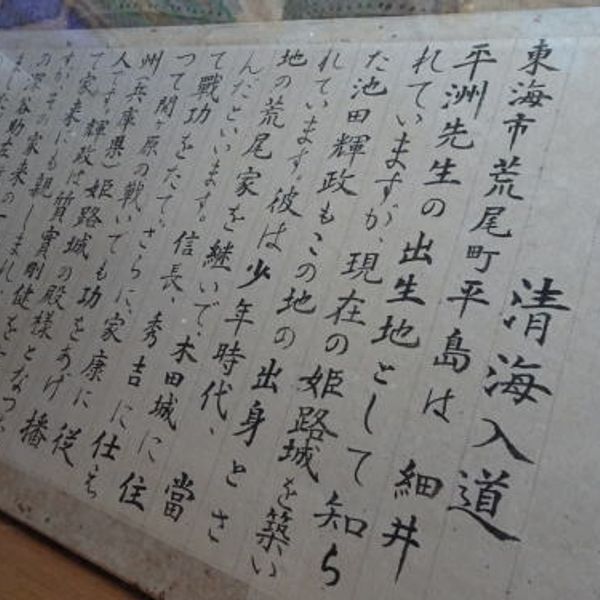 清海入道
東海市荒尾町平島は細井
平洲先生の出生地として知ら
れていますが、現在の姫路城を築い
た池田輝政もこの地の出身とさ
れています。彼は少年時代、當
地の荒尾家を継いで、木田城に住
んだといいます。信長、秀吉に仕え
て戰功をたて、さらに、家康に従
つて関ヶ原の戰いでも功をあげ播
州(兵庫県)姫路城の殿様となつた
人です。輝政は質實剛健を
て家来にも親しまれ
すが、その家来の
の深谷助左
ました